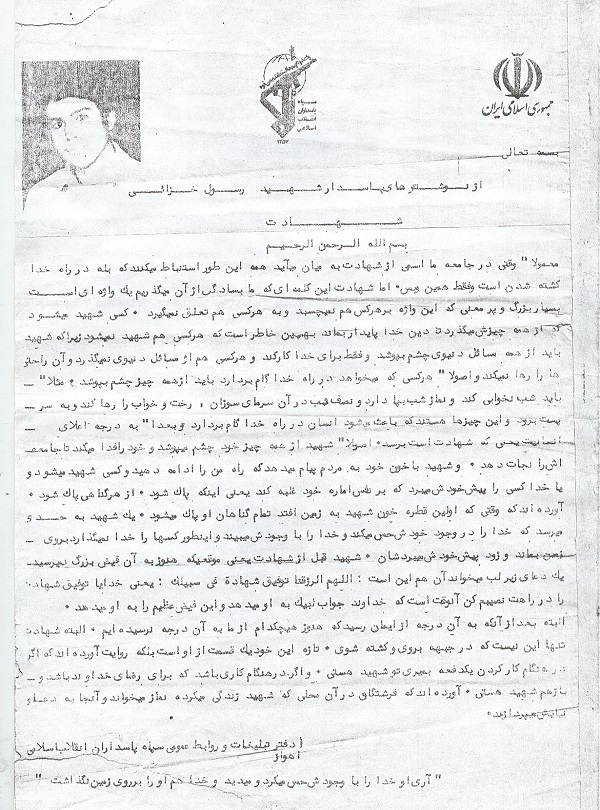 جمهوری اسلامی ایران
سپاه
پاسداران
انقلاب
اسلامی
۱۳۵۷
بسمه تعالی
از نوشته های پاسدار شهید رسول خزائی
شهادت
بسم الله الرحمن الرحیم
معمولا" وقتی در جامعه ما اسمی از شهادت به میان می‌آید همه این طور استنباط میکنند که بله در راه خدا
کشته شدن است وفقط همین وبس۰ اما شهادت این کلمه ای که ما بسادگی از آن میگذریم یک واژه ای است
بسیار بزرگ و پر معنی که این واژه بر هرکس هم نمیچسبد و به هرکسی هم تعلق نمیگیرد ۰ کسی شهید میشود
که از همه چیزش میگذرد تا دین خدا پایدار بماند بهمین خاطر است که هرکسی هم شهید نمیشود زیرا که شهید
باید از همه مسائل دنیوی چشم بپوشد و فقط برای خدا کار کند و هرکسی هم از مسائل دنیوی نمیگذرد و آن راحتی
ها را رها نمیکند و اصولا" هرکسی که میخواهد در راه خدا گام بردارد باید از همه چیز چشم بپوشد ۰ مثلا" ـ
باید شب نخوابی کند و نماز شب بپا دارد و نصف شب در آن سرمای سوزان ، رخت و خواب را رها کند و به سر ـ
پست برود و این چیزها هستند که باعث میشود انسان در راه خدا گام بردارد و بعدا" به درجه اعلای ـ
انسانیت یعنی که شهادت است برسد۰ اصولا" شهید از همه چیز خود چشم میپوشد و خود را فدا میکند تا جامعه
اش را نجات دهد ۰ و شهید با خون خود به مردم پیام میدهد که راه من را ادامه دهید و کسی شهید میشود و
یا خدا کسی را پیش خودش میبرد که بر نفس اماره خود غلبه کند یعنی اینکه پاک شود ۰ از هر گناهی پاک شود ۰
آورده اند که وقتی که اولین قطره خون شهید به زمین افتد تمام گناهان او پاک میشود ۰ یک شهید به حدی
میرسد که خدا را در وجود خودش حس میکند و خدا را با وجودش میبیند و اینطور کسها را خدا نمیگذارد بروی ـ
زمین بماند و زود پیش خودش میبردشان ۰ شهید قبل از شهادت یعنی موقعیکه هنوز به آن فیض بزرگ نمیرسید
یک دعای زیر لب میخواند آن هم این است : اللهم الرزقنا توفیق شهادة فی سبیلک : یعنی خدایا توفیق شهادت
را در راهت نصیبم کن آنوقت است که خداوند جواب لبیک به او میدهد و این فیض عظیم را به او میدهد ۰
البته بعد از آنکه به آن درجه از ایمان رسید که هنوز هیچکدام از ما به آن درجه نرسیده ایم ۰ البته شهادت
تنها این نیست که در جبهه بروی و کشته شوی ۰ تازه این خود یک قسمت از او است بلکه روایت آورده اند که اگر
در هنگام کار کردن یکدفعه بمیری تو شهید هستی ۰ و اگر در هنگام کاری باشد که برای رضای خداوند باشد و ـ
بازهم شهید هستی ۰ آورده اند که فرشتگان در آن محلی که شهید زندگی میکرده نماز میخواند و آنجا به دعا و
نیایش میپردازند۰
دفتر تبلیغات و روابط عمومی سپاه پاسداران انقلاب اسلامی
اهواز
" آری او خدا را با وجودش حس میکرد و میدید و خدا هم او را بر روی زمین نگذاشت "